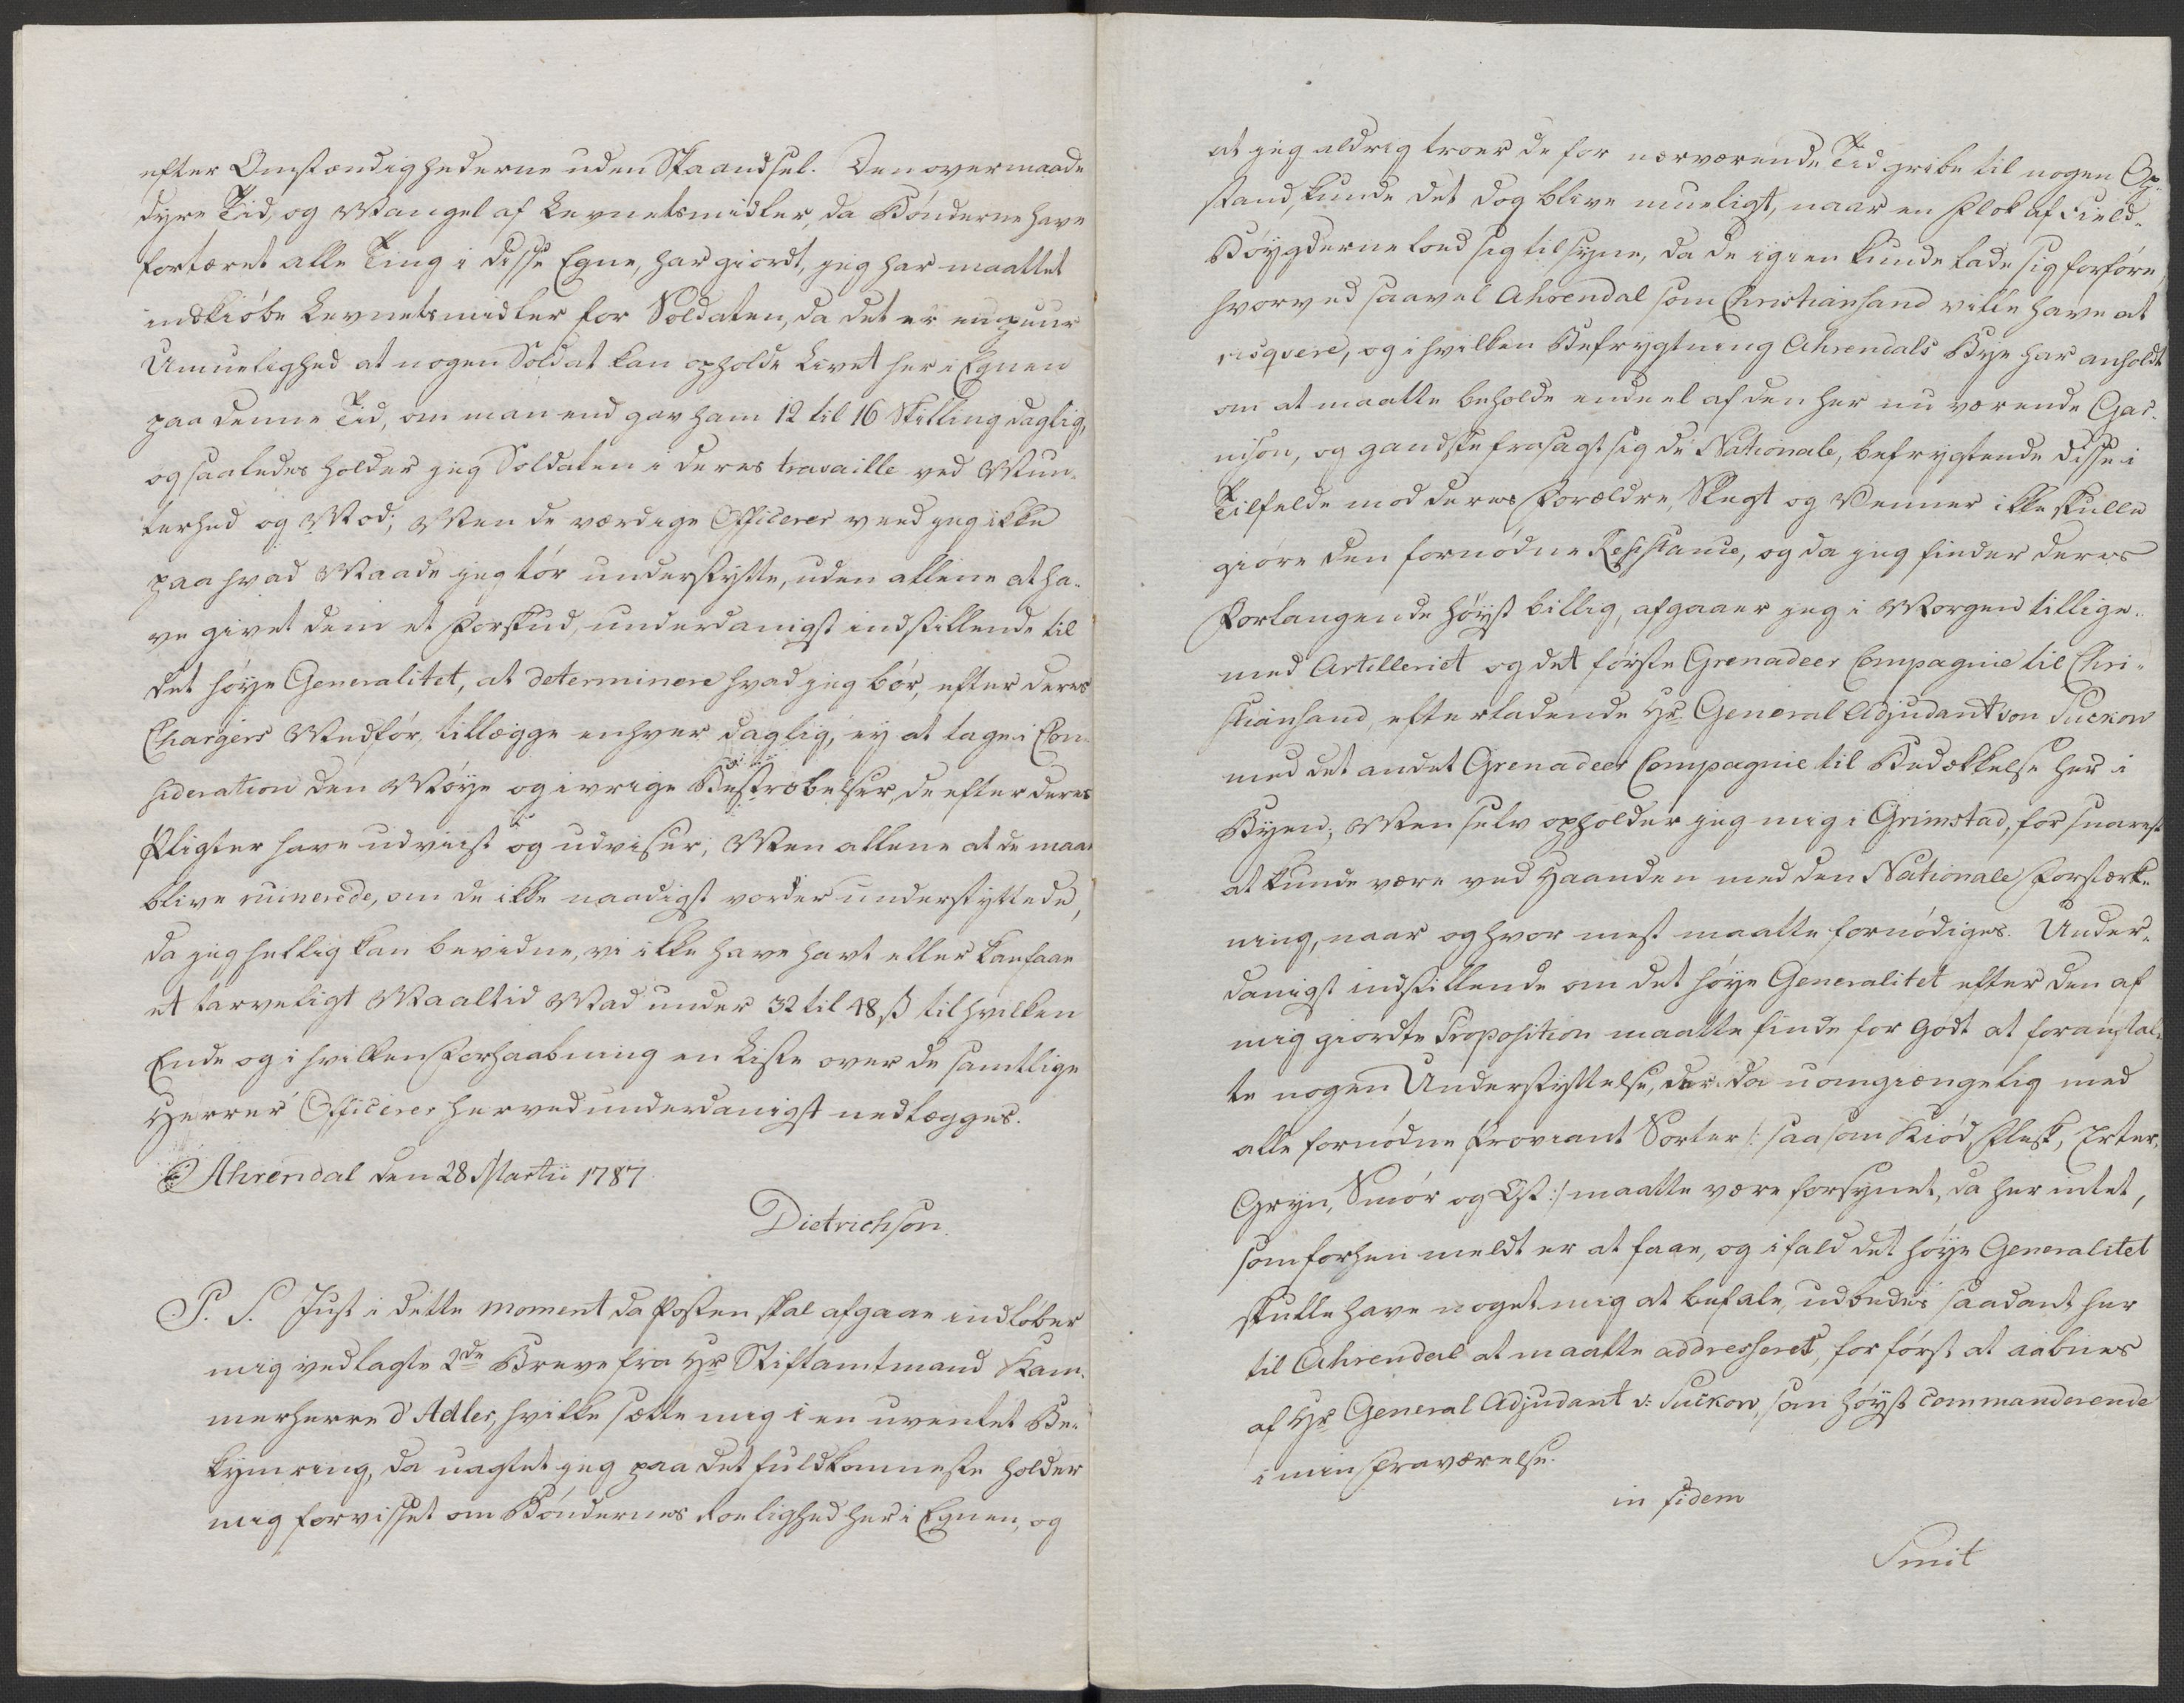 efter Omstændighederne uden Skaandsel. Den overmaade
dyre Tid, og Mangel af Levnetsmidler, da Bönderne have
fortæret alle Ting i disse Egne, har giordt, jeg har maattet
indkiöbe Levnetsmidler for Soldaten, da det er en puur
Umuelighed at nogen Soldat kan opholde Livet her i Egnen
paa denne Tid, om man end gav ham 12 til 16 Skilling daglig,
og saaledes holder jeg Soldaten i deres travaille ved Mun-
terhed og Mod; Men de værdige Officerer veed jeg ikke
paa hvad Maade jeg tör understytte, uden allene at ha-
ve givet dem et Forskud, underdanigst indstillende til
det höye Generalitet, at determinere hvad jeg bör, efter deres
Chargers Medför, tillægge enhver daglig, ey at tage i Con-
sideration den Möye og ivrige Bestræbelser, de efter deres
Pligter have udviist og udviser, Men allene at de maae
blive ruinerede, om de ikke naadigst vorder understyttede,
da jeg hellig kan bevidne, vi ikke have havt eller kan faae
et tarveligt Maaltid Mad under 32 til 48 ß til hvilken
Ende og i hvilken Forhaabning en Liste over de samtlige
Herrer Officerer herved underdanigst nedlægges.
Ahrendal den 28 Martii 1787
Dietrichson.
P. S. Just i dette moment da Posten skal afgaae indlöber
mig vedlagte 2de Breve fra Hr Stiftamtmand Kam-
merherre d'Adler, hvilke sætte mig i en uventet Be-
kymring, da uagtet jeg paa det fuldkomneste holder
mig forvisset om Böndernes Roelighed her i Egnen, og
at jeg aldrig troer de for nærværende Tid gribe til nogen Op-
stand, kunde det dog blive mueligt, naar en Flok af Field-
Böygderne lod sig til syne, da de igien kunde lade sig forföre,
hvorved saavel Ahrendal som Christiansand ville have at
risqvere, og i hvilken Befrygtning Ahrendals Bye har anholdt
om at maatte beholde endeel af den her nu værende Gar-
nison, og gandske frasagt sig de Nationale, befrygtende disse i
Tilfelde mod deres Forældre, Slegt og Venner ikke skulle
giöre den fornödne Resistance, og da jeg finder deres
Forlangende höyst billig, afgaaer jeg i Morgen tillige-
med Artilleriet og det förste Grenadeer Compagnie til Chri-
stiansand, efterladende Hr General Adjudant von Suckow
med det andet Grenadeer Compagnie til Bedækkelse her i
Byen; Men selv opholder jeg mig i Grimstad, for snarest
at kunde være ved Haanden med den Nationale Forstærk-
ning, naar og hvor mest maatte fornödiges. Under-
danigst indstillende om det höye Generalitet efter den af
mig giordte Proposition maatte finde for godt at foranstal-
te nogen Understyttelse, der da uomgiængelig med
alle fornödne Proviant Sorter /: saasom Kiöd, Flesk, Erter,
Gryn, Smör og Ost :/ maatte være forsynet, da her intet,
som forhen meldt er at faae, og ifald det höye Generalitet
skulle have noget mig at befale, udbedes saadant her
til Ahrendal at maatte addresseret, for först at aabnes
af Hr General Adjudant v: Suckow, som höyst commanderende
i min Fraværelse.
in fidem
Smit